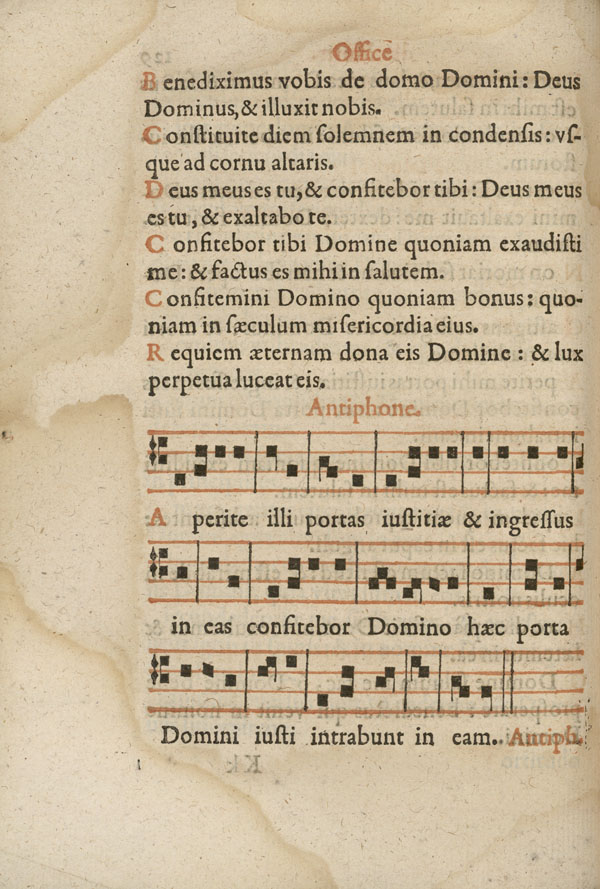 Office
Benediximus vobis de domo Domini: Deus
Dominus, & illuxit nobis.
Constituite diem solemnem in condensis: vs-
que ad cornu altaris.
Deus meus es tu, & confitebor tibi: Deus meus
es tu, & exaltabo te.
Confitebor tibi Domine quoniam exaudisti
me: & factus es mihi in salutem.
Confitemini Domino quoniam bonus: quo-
niam in sæculum misericordia eius.
Requiem æternam dona eis Domine: & lux
perpetua luceat eis.
Antiphone.
Aperite illi portas iustitiæ & ingressus
in eas confitebor Domino hæc porta
Domini iusti intrabunt in eam. Antiph.